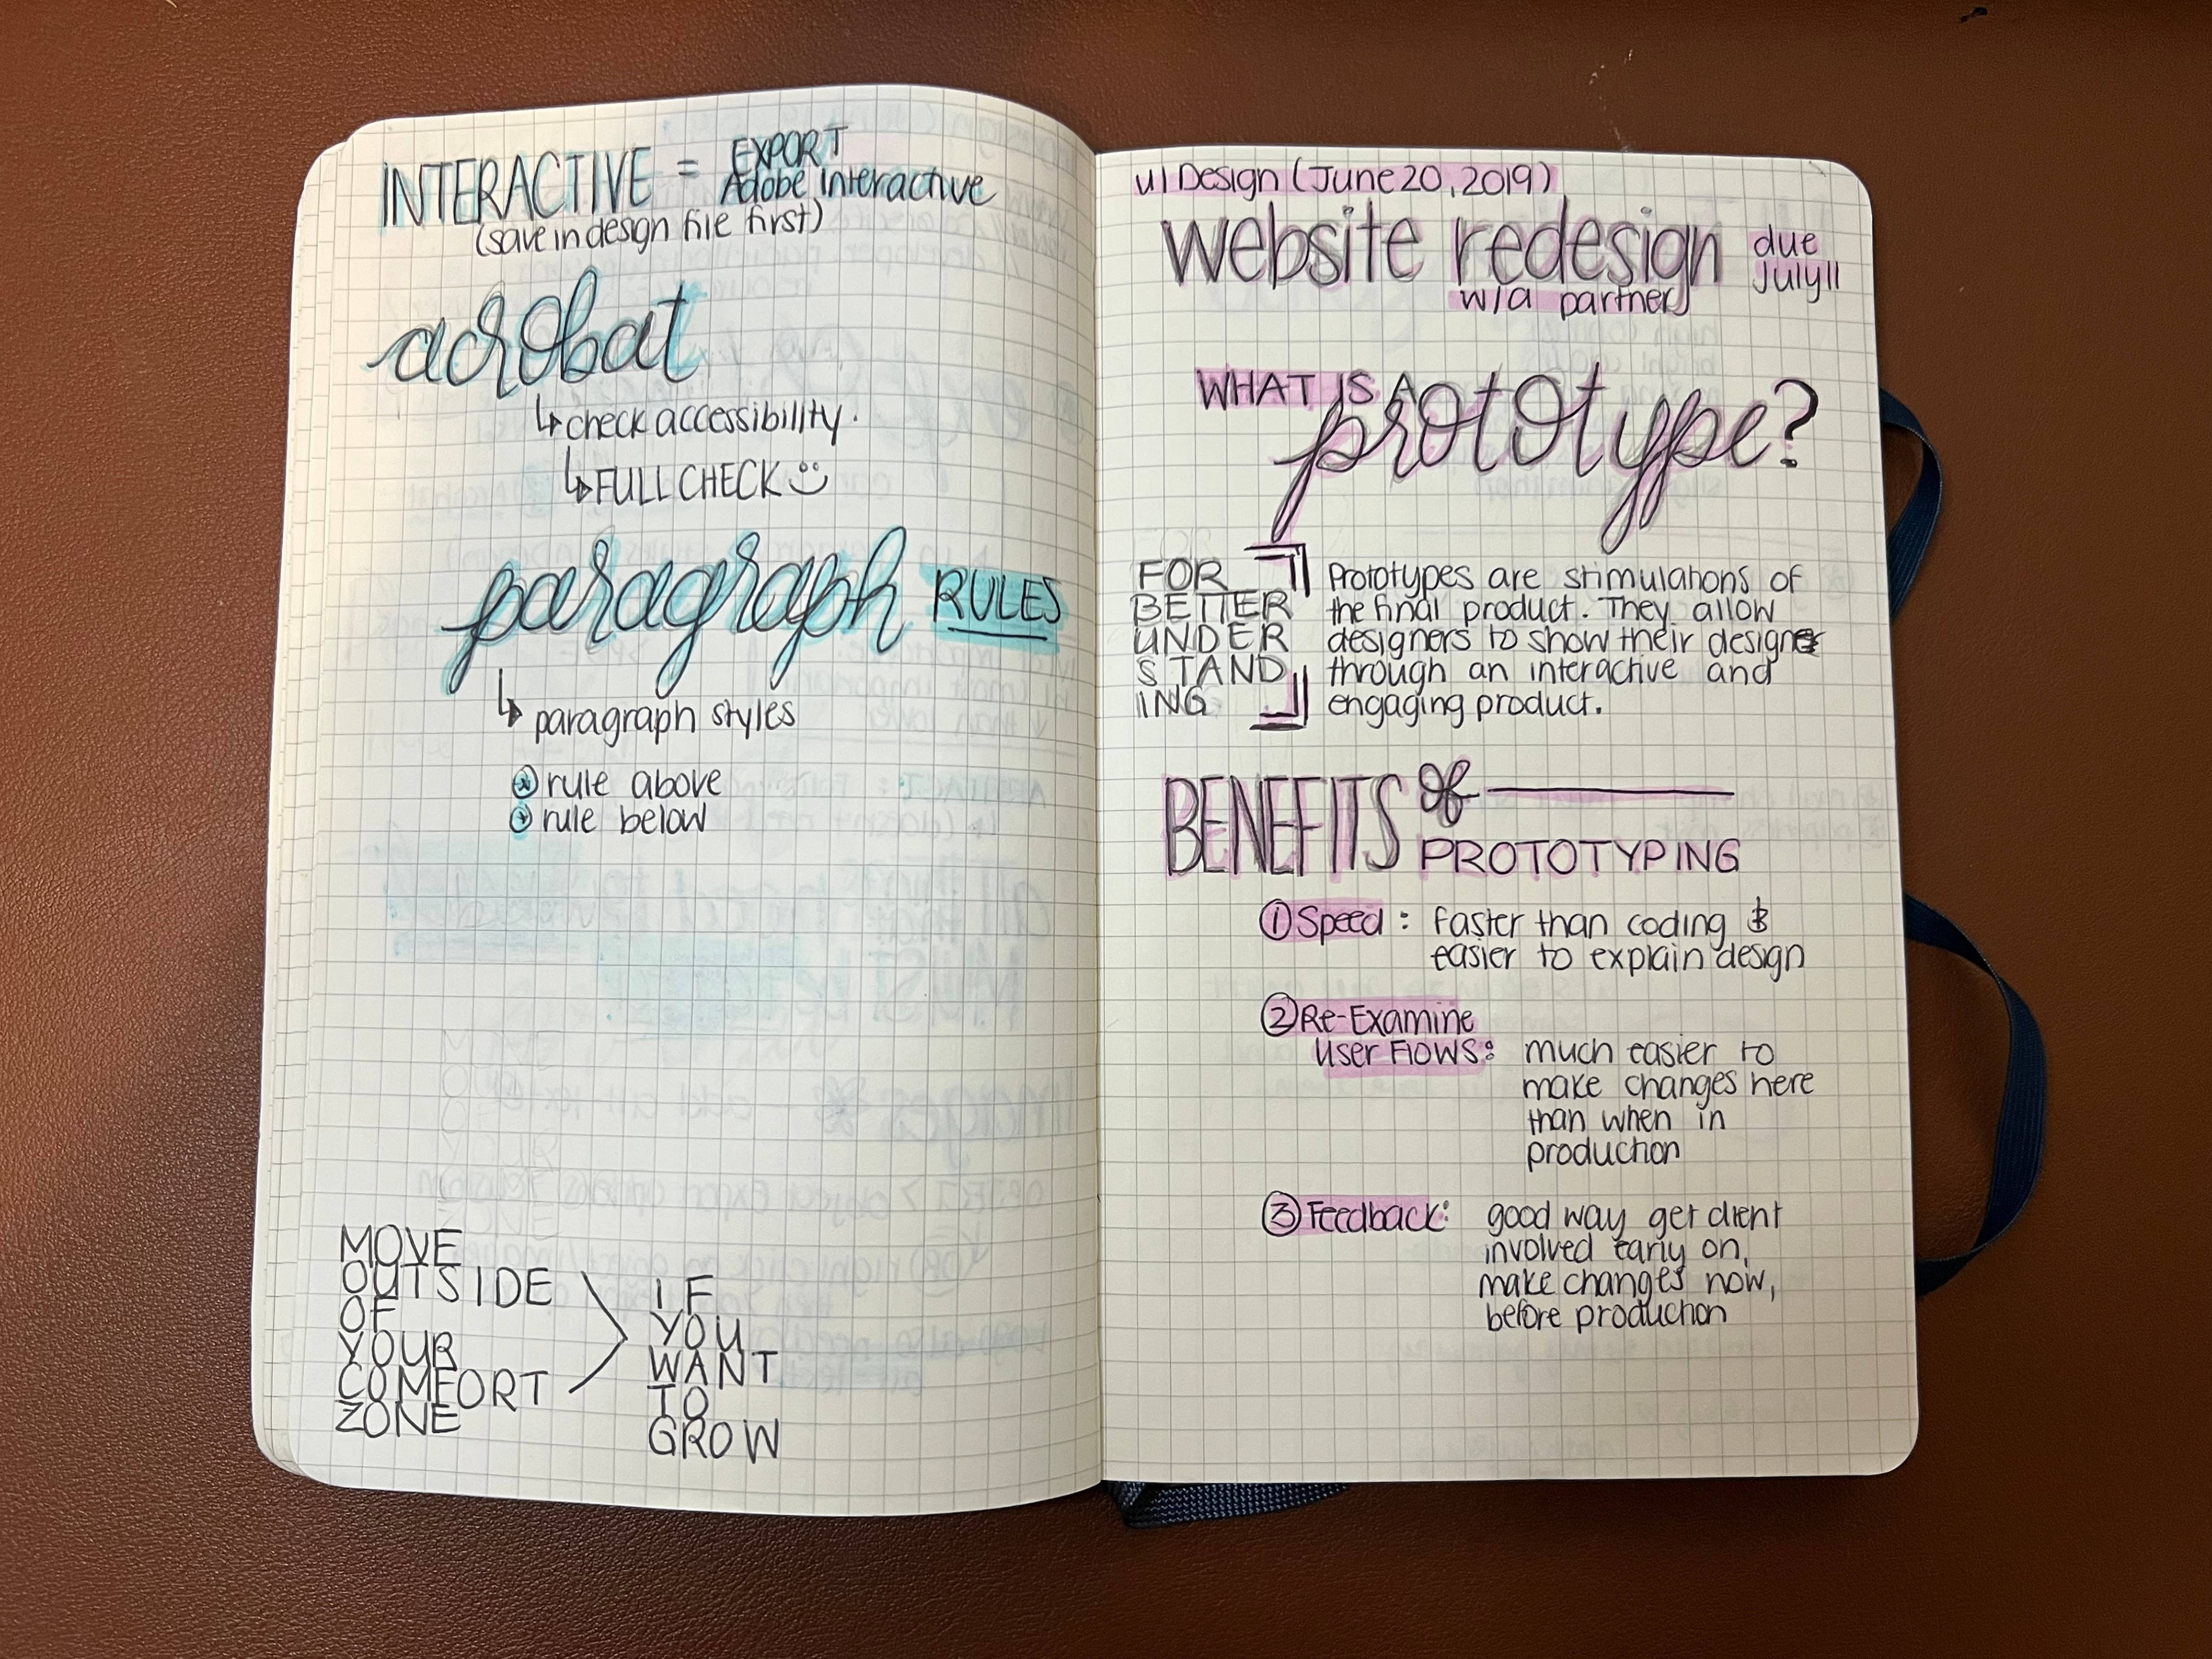 INTERACTIVE = EXPORT
Adobe interactive
(save indesign file first)
acrobat
↳ check accessibility.
↳ FULL CHECK
paragraph RULES
↳ paragraph styles
rule above
rule below
MOVE
OUTSIDE
OF
YOUR
COMFORT
ZONE
IF
YOU
WANT
TO
GROW
UI Design (June 20, 2019)
website redesign due
July 11
w/a partner
WHAT IS A
prototype?
FOR
BETTER
UNDER
STAND
ING
Prototypes are stimulations of
the final product. They allow
designers to show their design
through an interactive and
engaging product.
BENEFITS of
PROTOTYPING
① Speed: faster than coding &
easier to explain design
② Re-Examine
User Flows: much easier to
make changes here
than when in
production
③ Feedback: good way get client
involved early on,
make changes now,
before production